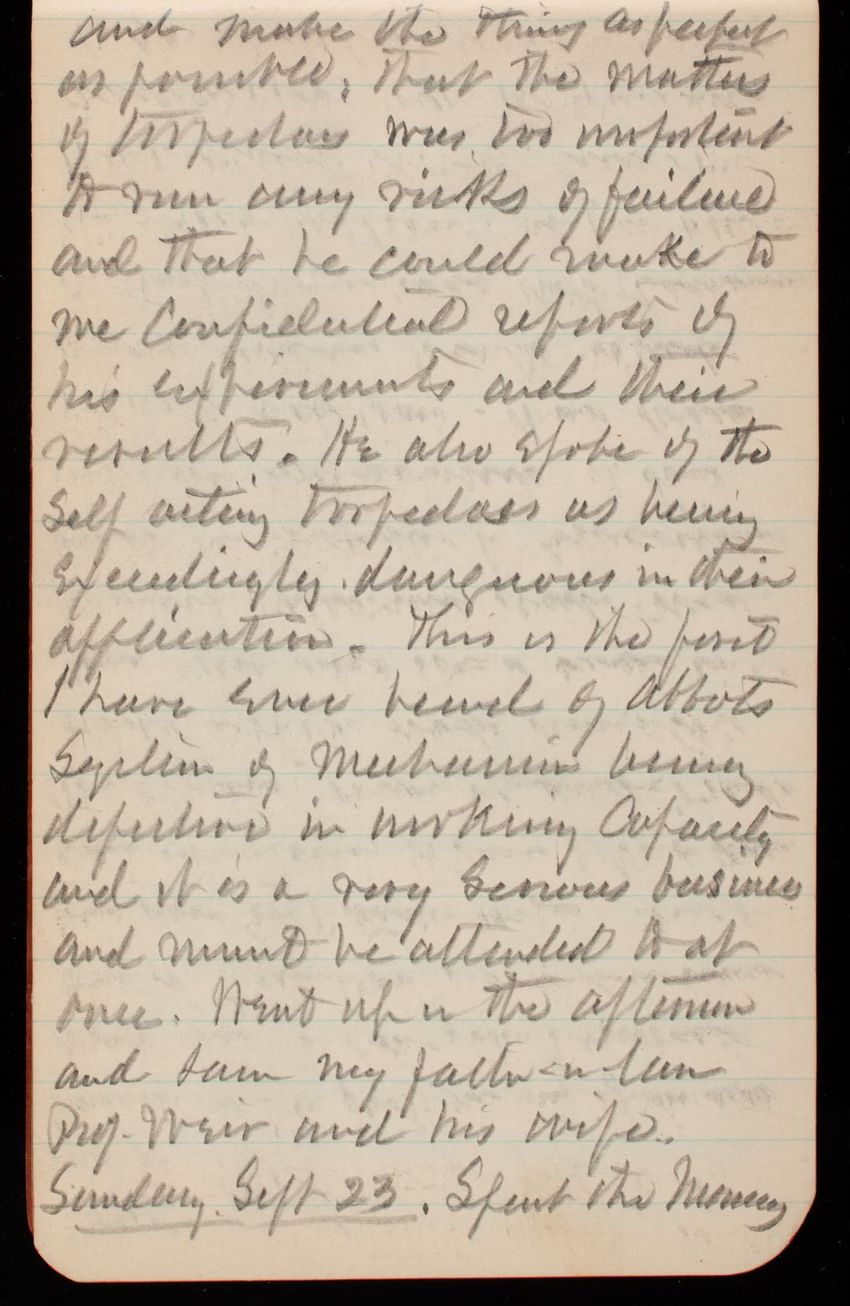 and make the thing as perfect
as possible, that the matters
of torpedoes was too important
to run any risks of failure
and that he could make to
me Confidential reports of
his experiments and their
results. He also spoke of the
Self acting torpedoes as being
Exceedingly dangerous in their
application. This is the first
I have ever heard of Abbots
System of Mechanism being
defective in working Capacity
and it is a very Serious business
and must be attended to at
once. Went up in the afternoon
and saw my father-in-law
Prof. Weir and his wife.
Sunday. Sept 23. Spent the Morning